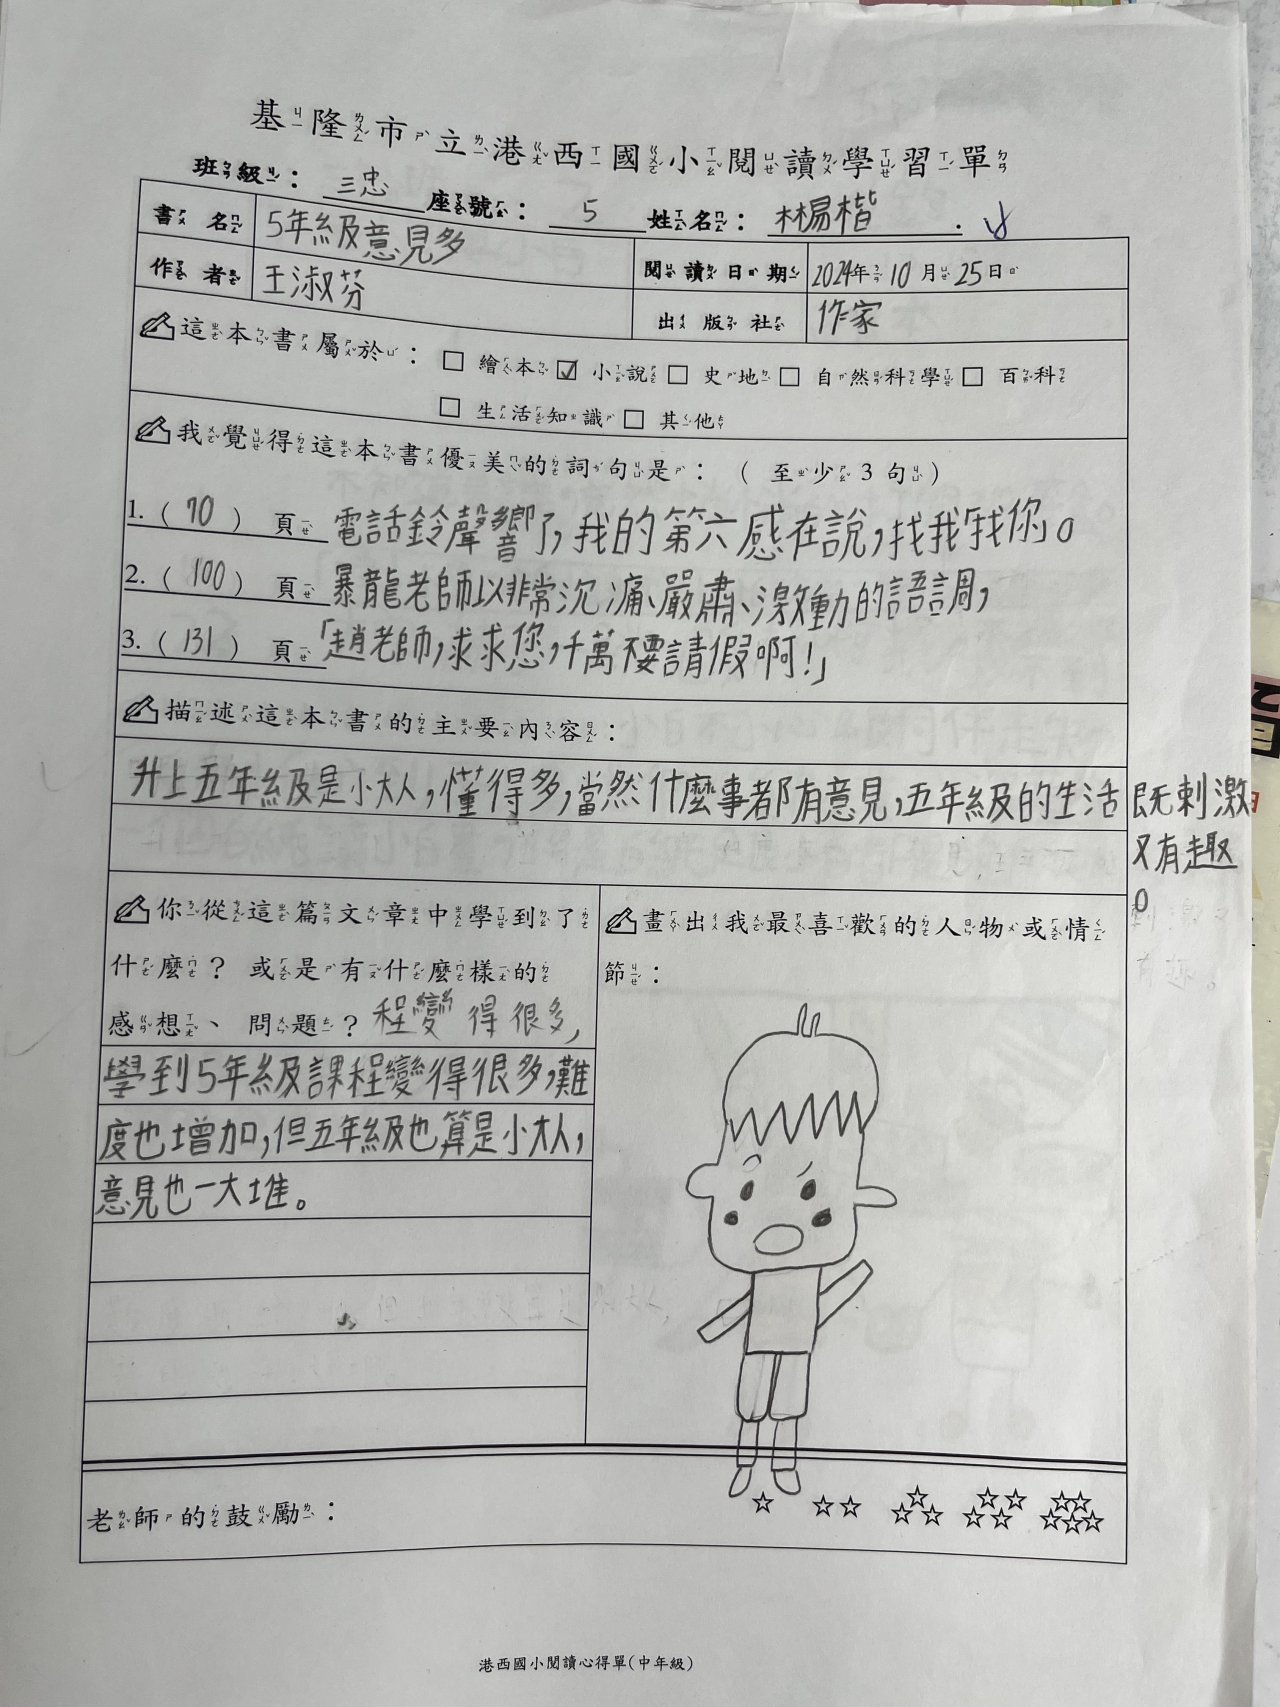 基隆市立港西國小閱讀學習單
班級：三忠 座號：5 姓名：林易楷
書名 5年級意見多
作者 王淑芬 閱讀日期 2024年10月25日
出版社 作家
這本書屬於：□繪本☑小說□史地□自然科學□百科
□生活知識□其他
我覺得這本書優美的詞句是：（至少3句）
1.（70）頁 電話鈴聲響了，我的第六感在說，找我找你」。
2.（100）頁 暴龍老師以非常沉痛、嚴肅、激動的語調，
3.（131）頁「趙老師，求求您，千萬不要請假啊！」
描述這本書的主要內容：
升上五年級是小大人，懂得多，當然什麼事都有意見，五年級的生活既刺激
又有趣
。
你從這篇文章中學到了
什麼？或是有什麼樣的
感想、問題？程變得很多，
學到5年級課程變得很多，難
度也增加，但五年級也算是小大人，
意見也一大堆。
畫出我最喜歡的人物或情
節：
老師的鼓勵：☆ ☆☆ ☆☆☆ ☆☆☆☆ ☆☆☆☆☆
港西國小閱讀心得單(中年級)